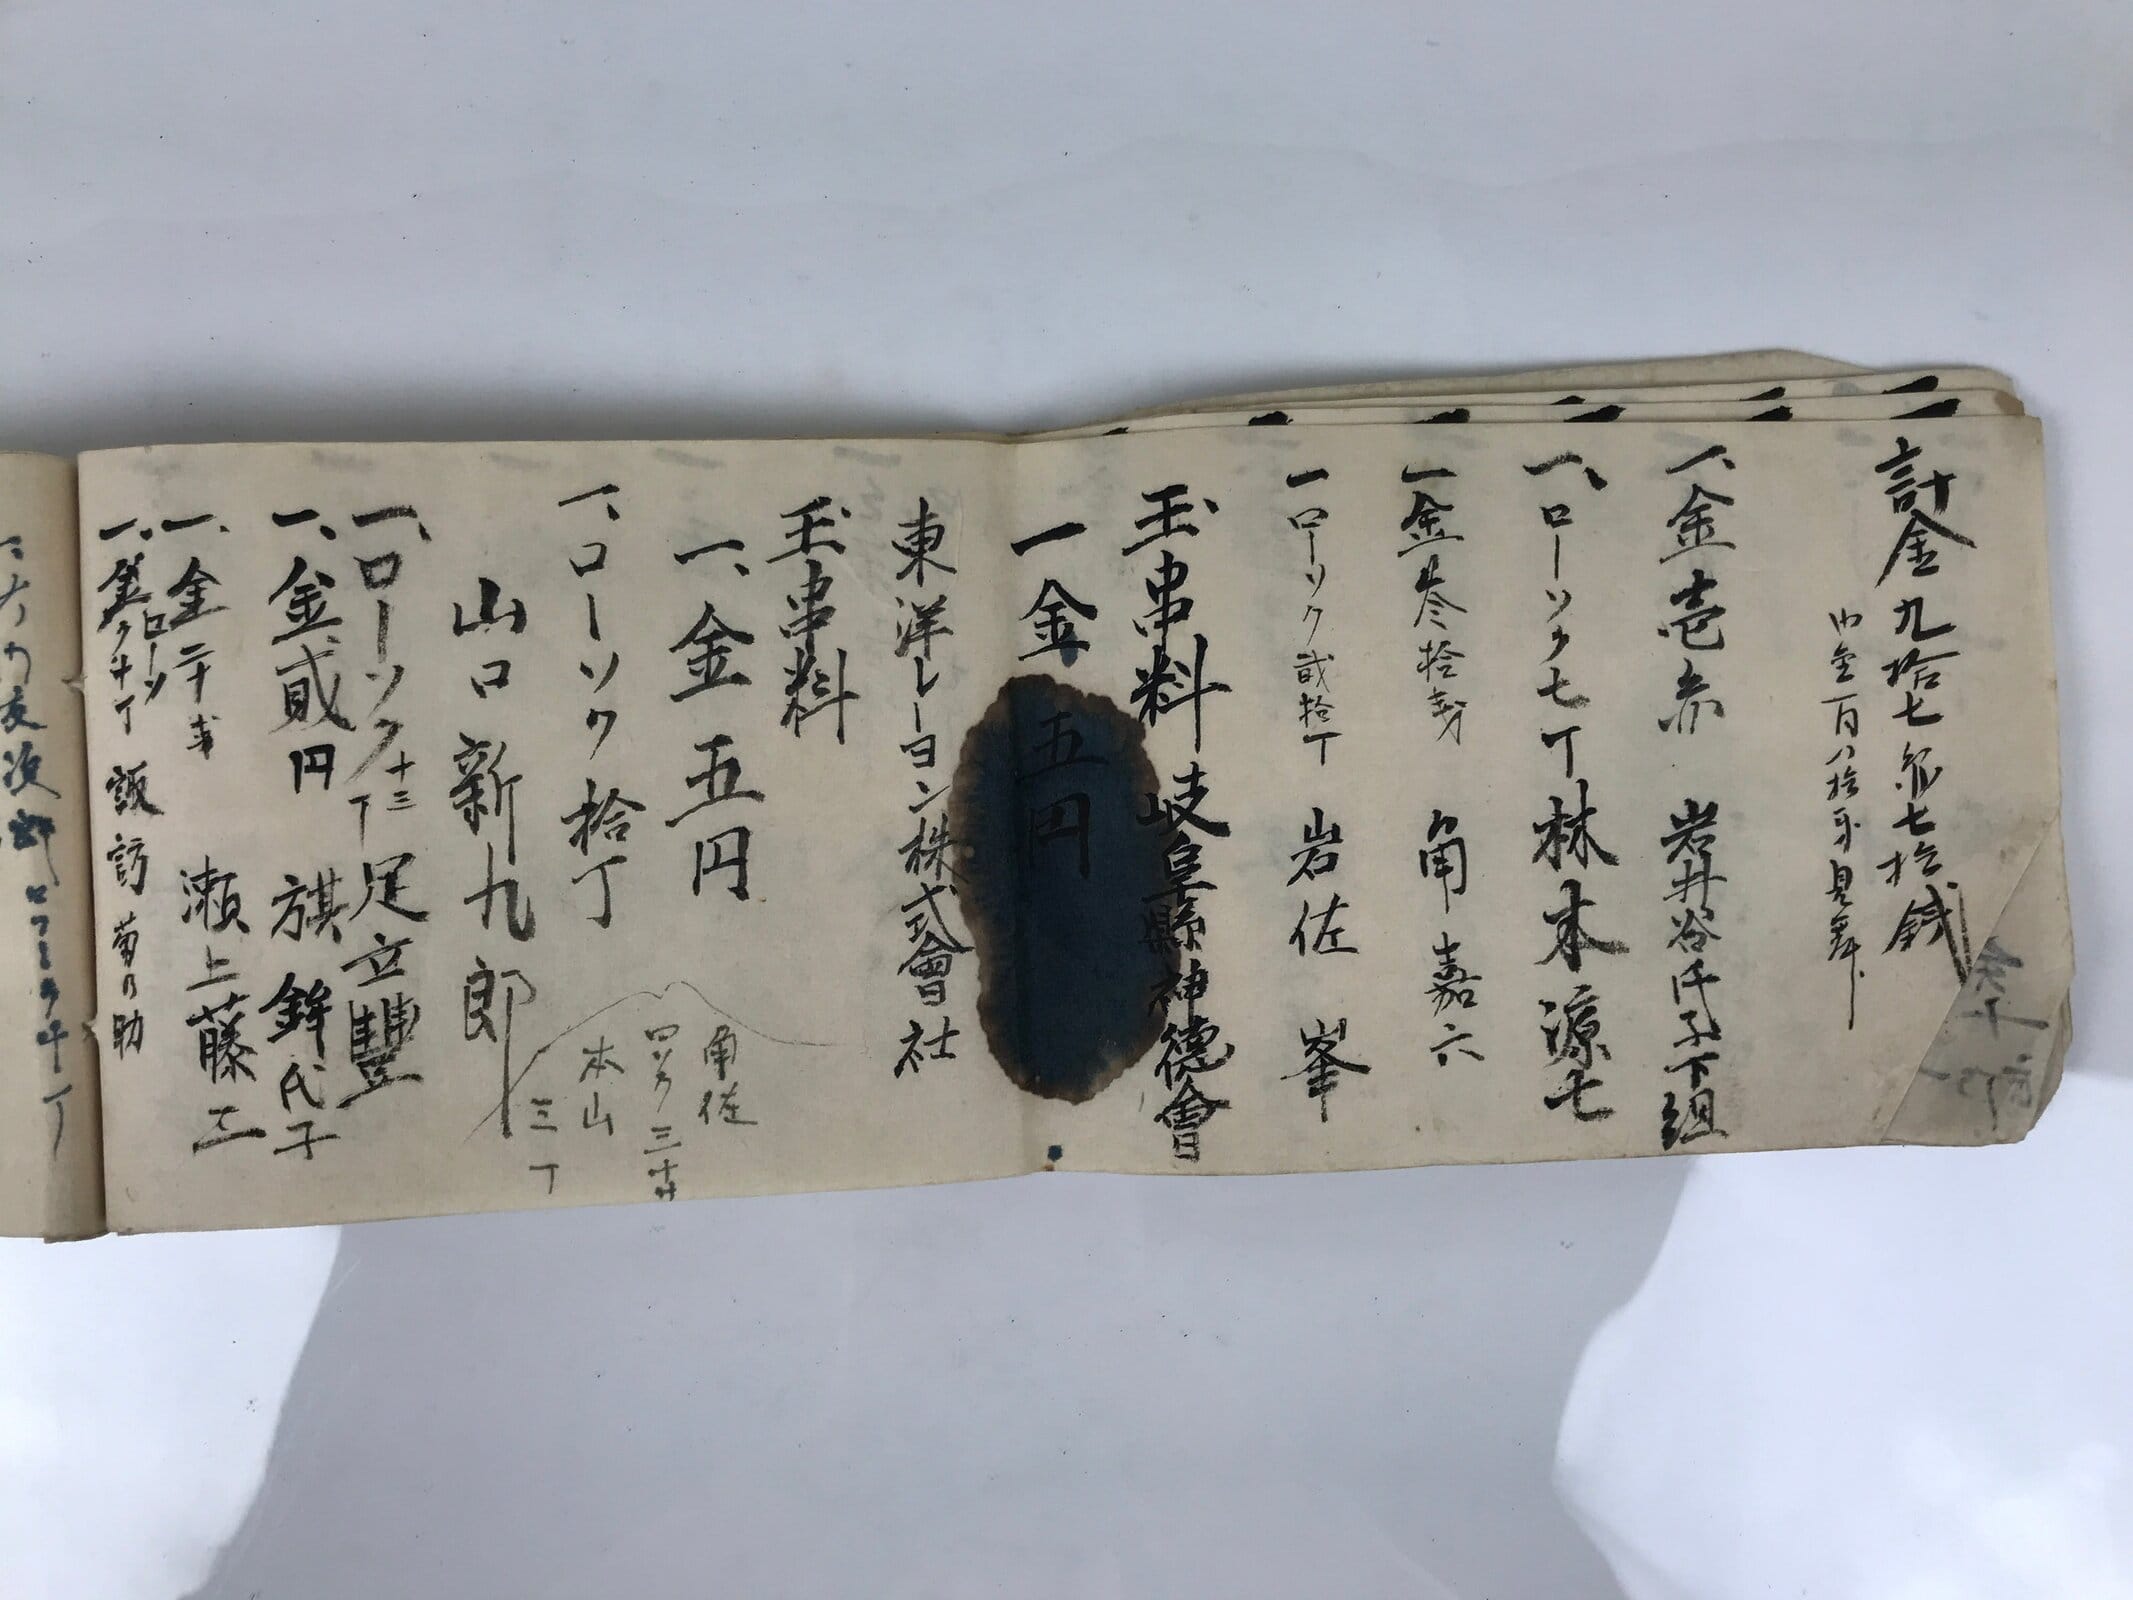 計金九拾七円七拾弐銭
一、金壱円 岩井谷氏子下組
一、ローソク七丁 林本源七
一金参拾銭 角嘉六
一ローソク弐拾丁 岩佐峯
玉串料 岐阜縣神徳會
一金五円
東洋レーヨン株式會社
玉串料
一、金五円
一、ローソク拾丁
山口新九郎
角佐
ロソク三十
本山
三丁
一、ローソク十三丁 足立豐
一、金貳円 旗鉾氏子
一、金二十 瀬上藤工
一、ローソク十丁 諏訪菊之助